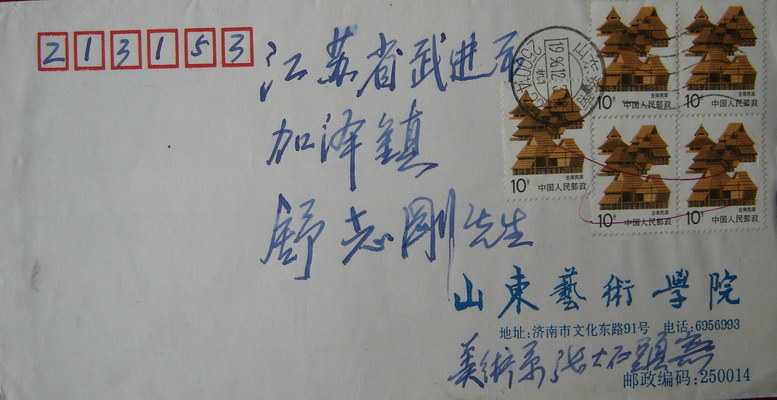 213153
江苏省武进市
加泽镇
舒志刚先生
10分
中国人民邮政
10分
中国人民邮政
10分
中国人民邮政
10分
中国人民邮政
10分
中国人民邮政
山東藝術學院
地址:济南市文化东路91号 电话:6956993
美术系张大石頭寄
邮政编码:250014